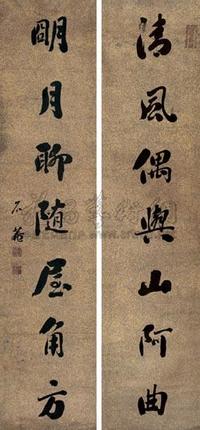 清風偶與山阿曲
朙月聊隨屋角方
石菴